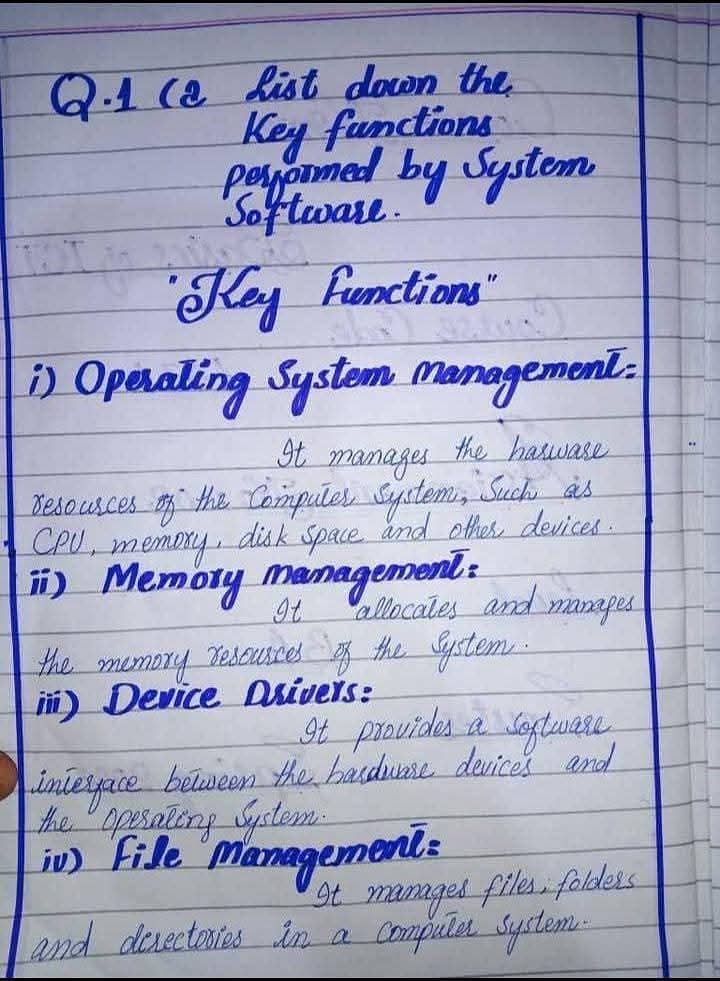 Q.1 (a List down the
Key functions
performed by System
Software.
"Key Functions"
i) Operating System Management:
It manages the harware
resources of the Computer System, Such as
CPU, memory, disk Space and other devices.
ii) Memory Management:
It allocates and manages
the memory resources of the System.
iii) Device Drivers:
It provides a software
interface between the hardware devices and
the Operating System.
iv) File Management:
It manages files, folders
and derectories in a Computer System.